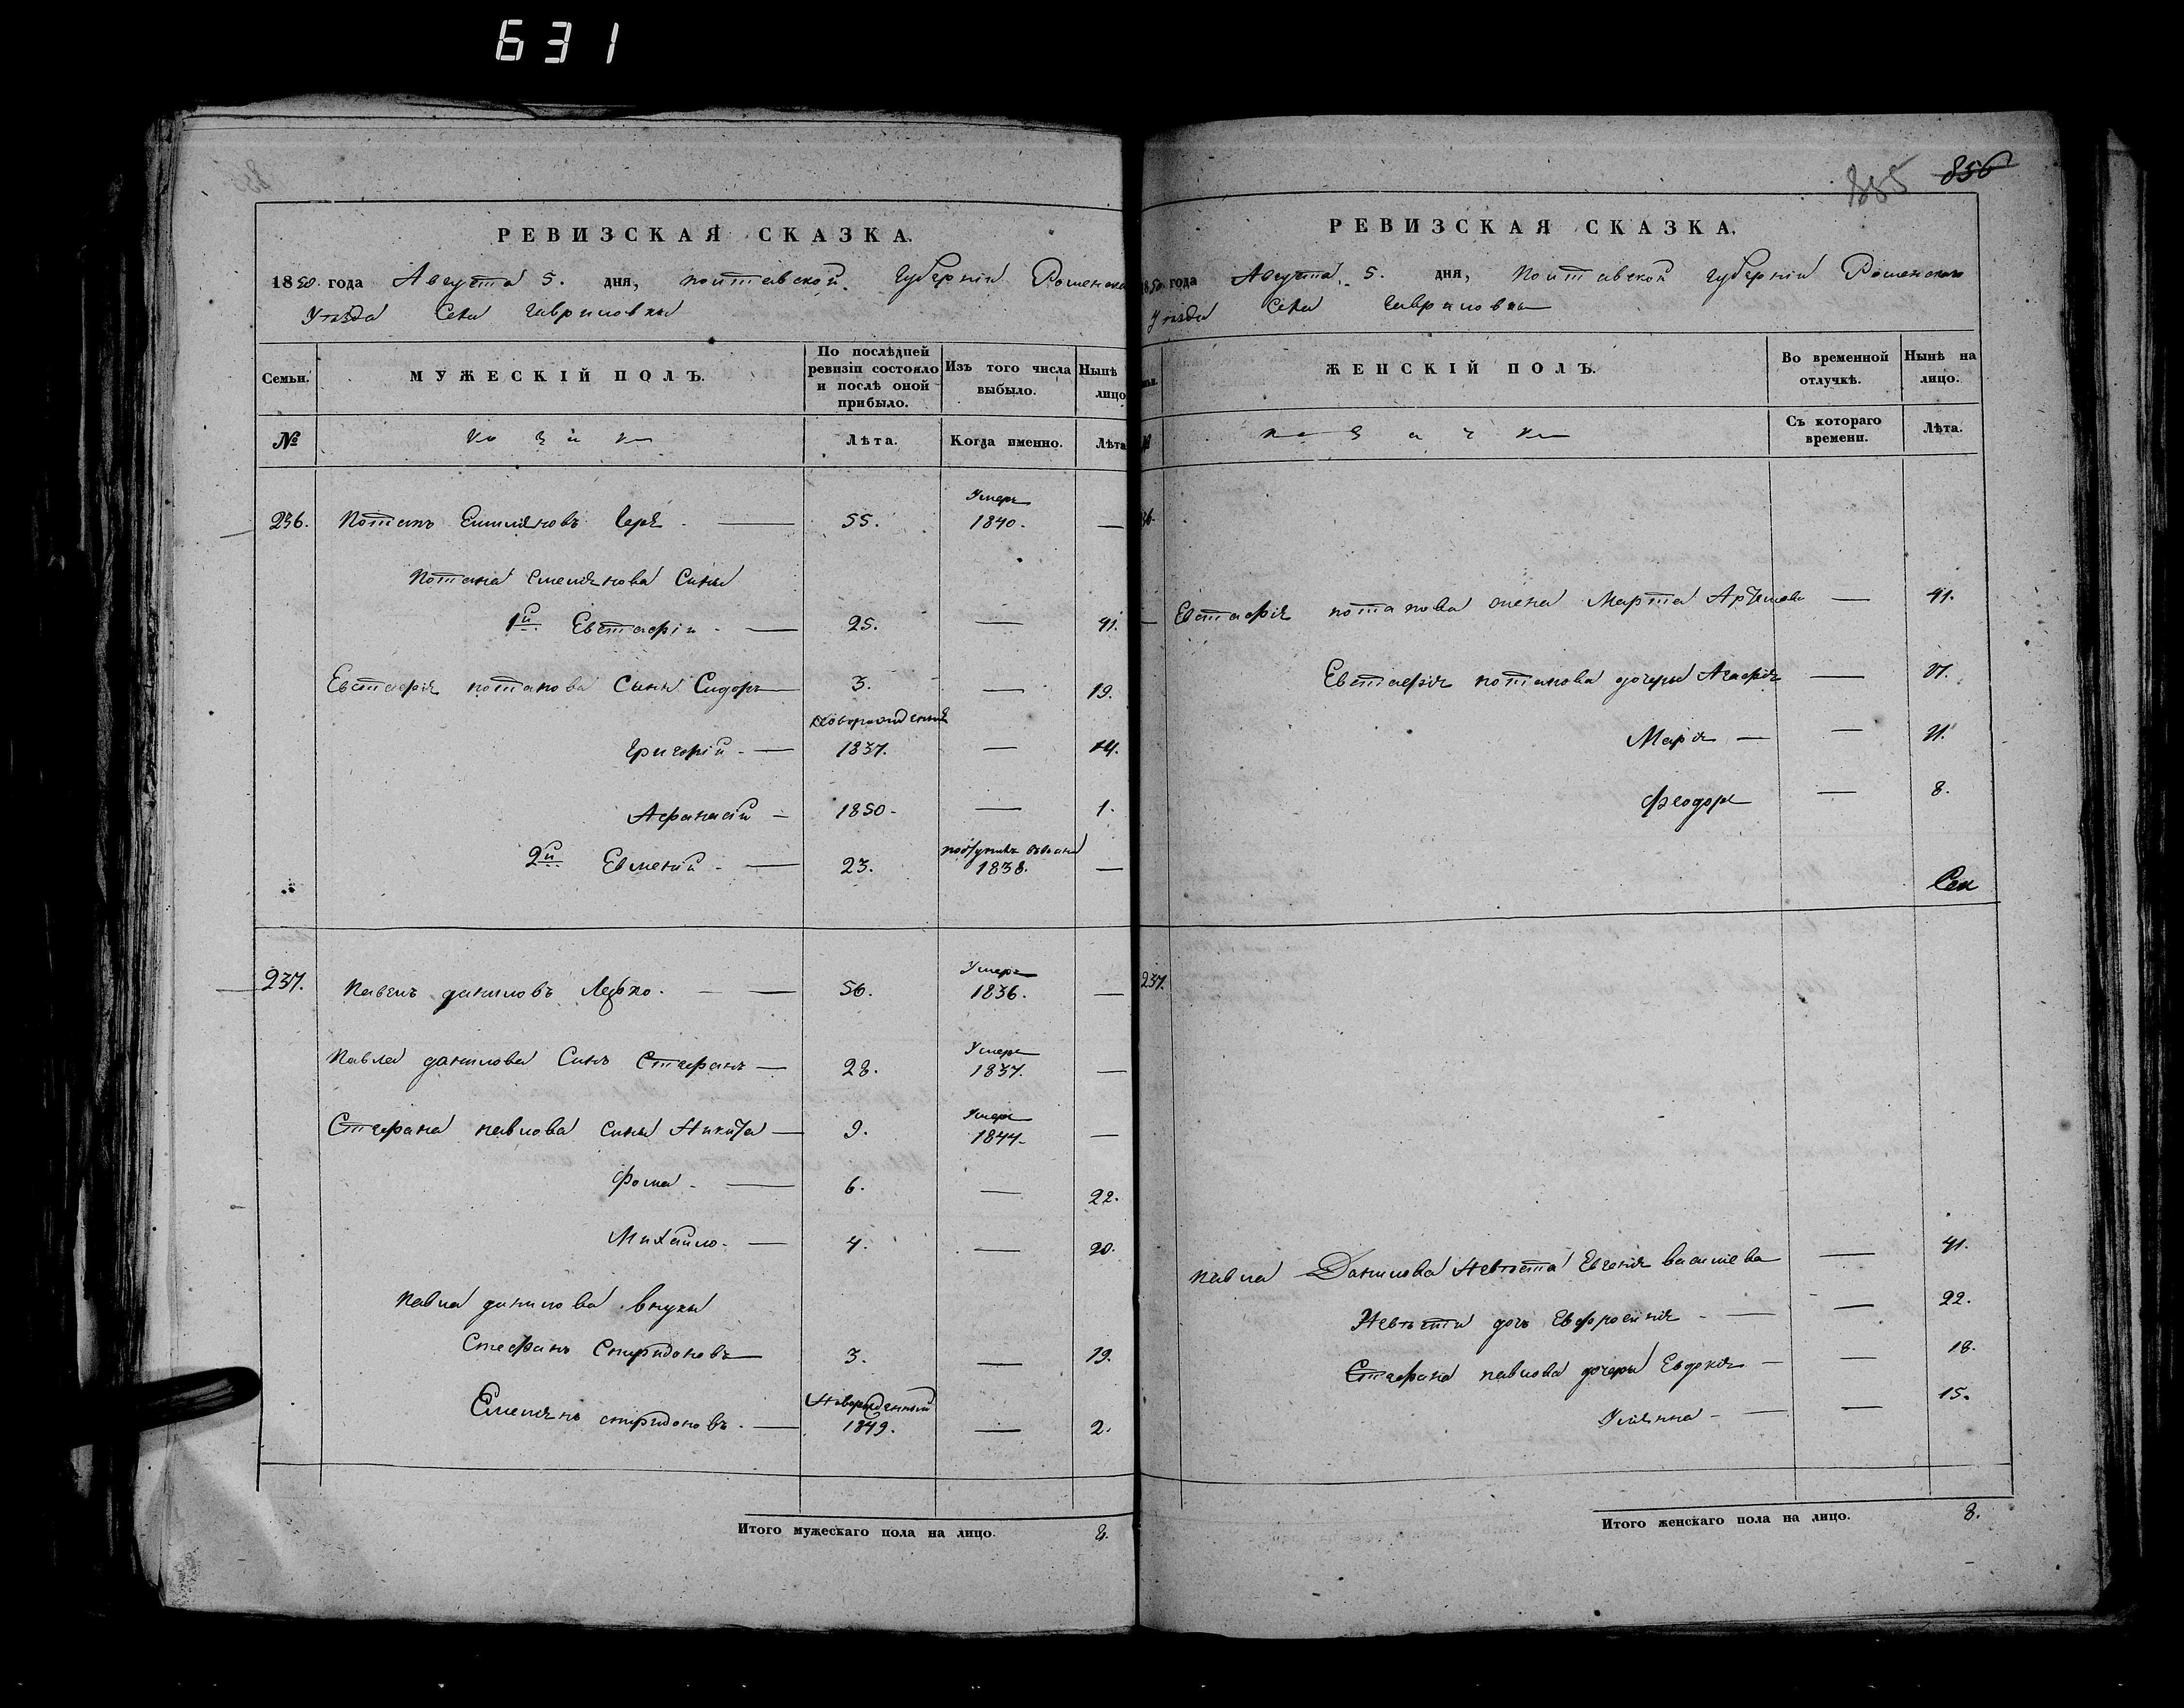 631
РЕВИЗСКАЯ СКАЗКА.
1850 года Августа 5. дня, полтавской Губерніи Роменска
Уѣзда Села Гавриловки
Семьи.
МУЖЕСКІЙ ПОЛЪ.
По послѣдней ревизіи состояло и послѣ оной прибыло.
Изъ того числа выбыло.
Нынѣ лицо
№
Лѣта.
Когда именно.
Лѣта
236. Потапъ Емиліяновъ 55. Умеръ 1840. —
Потапа Емеліянова Сины
1й Евстафій — 25. — 41.
Евстафія потапова Сины Сидоръ — 3. — 19.
новорожденный
Григорій — 1837. — 14.
Афанасій — 1850 — 1.
2й Евменій — 23. 1838. —
237. Павелъ даниловъ 56. Умеръ 1836. —
Павла данилова Синъ Стефанъ — 28. Умеръ 1837. —
Стефана павлова сины Никита — 9. Умеръ 1844. —
Фома — 6. — 22.
Михайло — 4. — 20.
Павла данилова внуки
Стефанъ Спиридоновъ 3. — 19.
Емеліянъ спиридоновъ — Новорожденный 1849. — 2.
Итого мужескаго пола на лицо. 8.
885 856
РЕВИЗСКАЯ СКАЗКА.
1850 года Августа 5. дня, Полтавской губерніи Роменскаго
Уѣзда Села Гавриловки
ЖЕНСКІЙ ПОЛЪ.
Во временной отлучкѣ.
Нынѣ на лицо.
Съ котораго времени.
Лѣта.
36.
Евстафія потапова жена Марта — 41.
Евстафія потапова дочеры Агафія — 21.
Марія — — 11.
Феодора — 8.
237.
павла Данилова Невѣста Евгенія василева — 41.
Невѣсти дочь Евфросинія — — 22.
Стефана павлова дочеры Евдокія — — 18.
Уліянна — — 15.
Итого женскаго пола на лицо. 8.